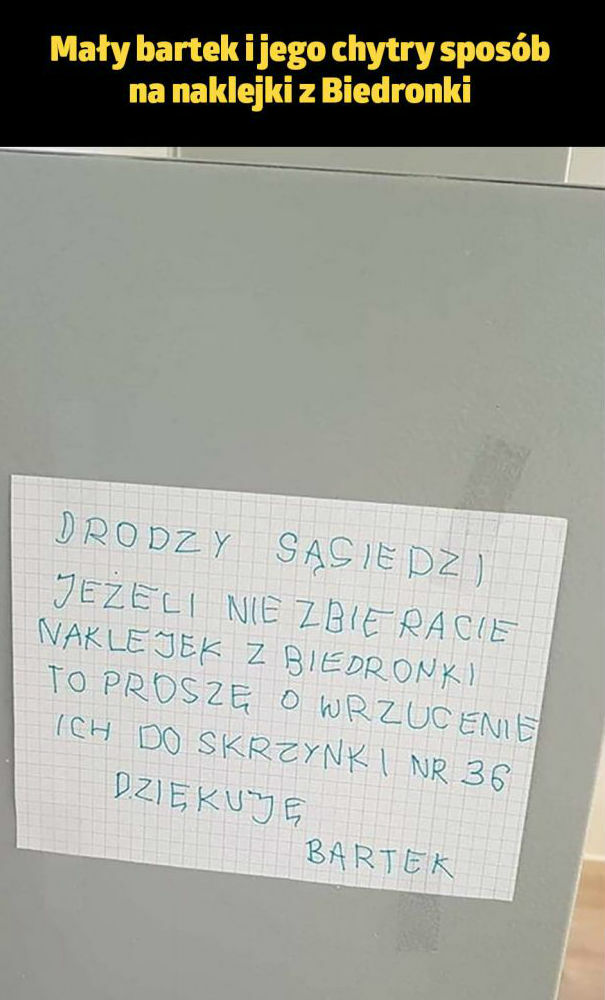 Mały bartek i jego chytry sposób
na naklejki z Biedronki
DRODZY SĄSIEDZI
JEŻELI NIE ZBIERACIE
NAKLEJEK Z BIEDRONKI
TO PROSZĘ O WRZUCENIE
ICH DO SKRZYNKI NR 36
DZIĘKUJĘ
BARTEK